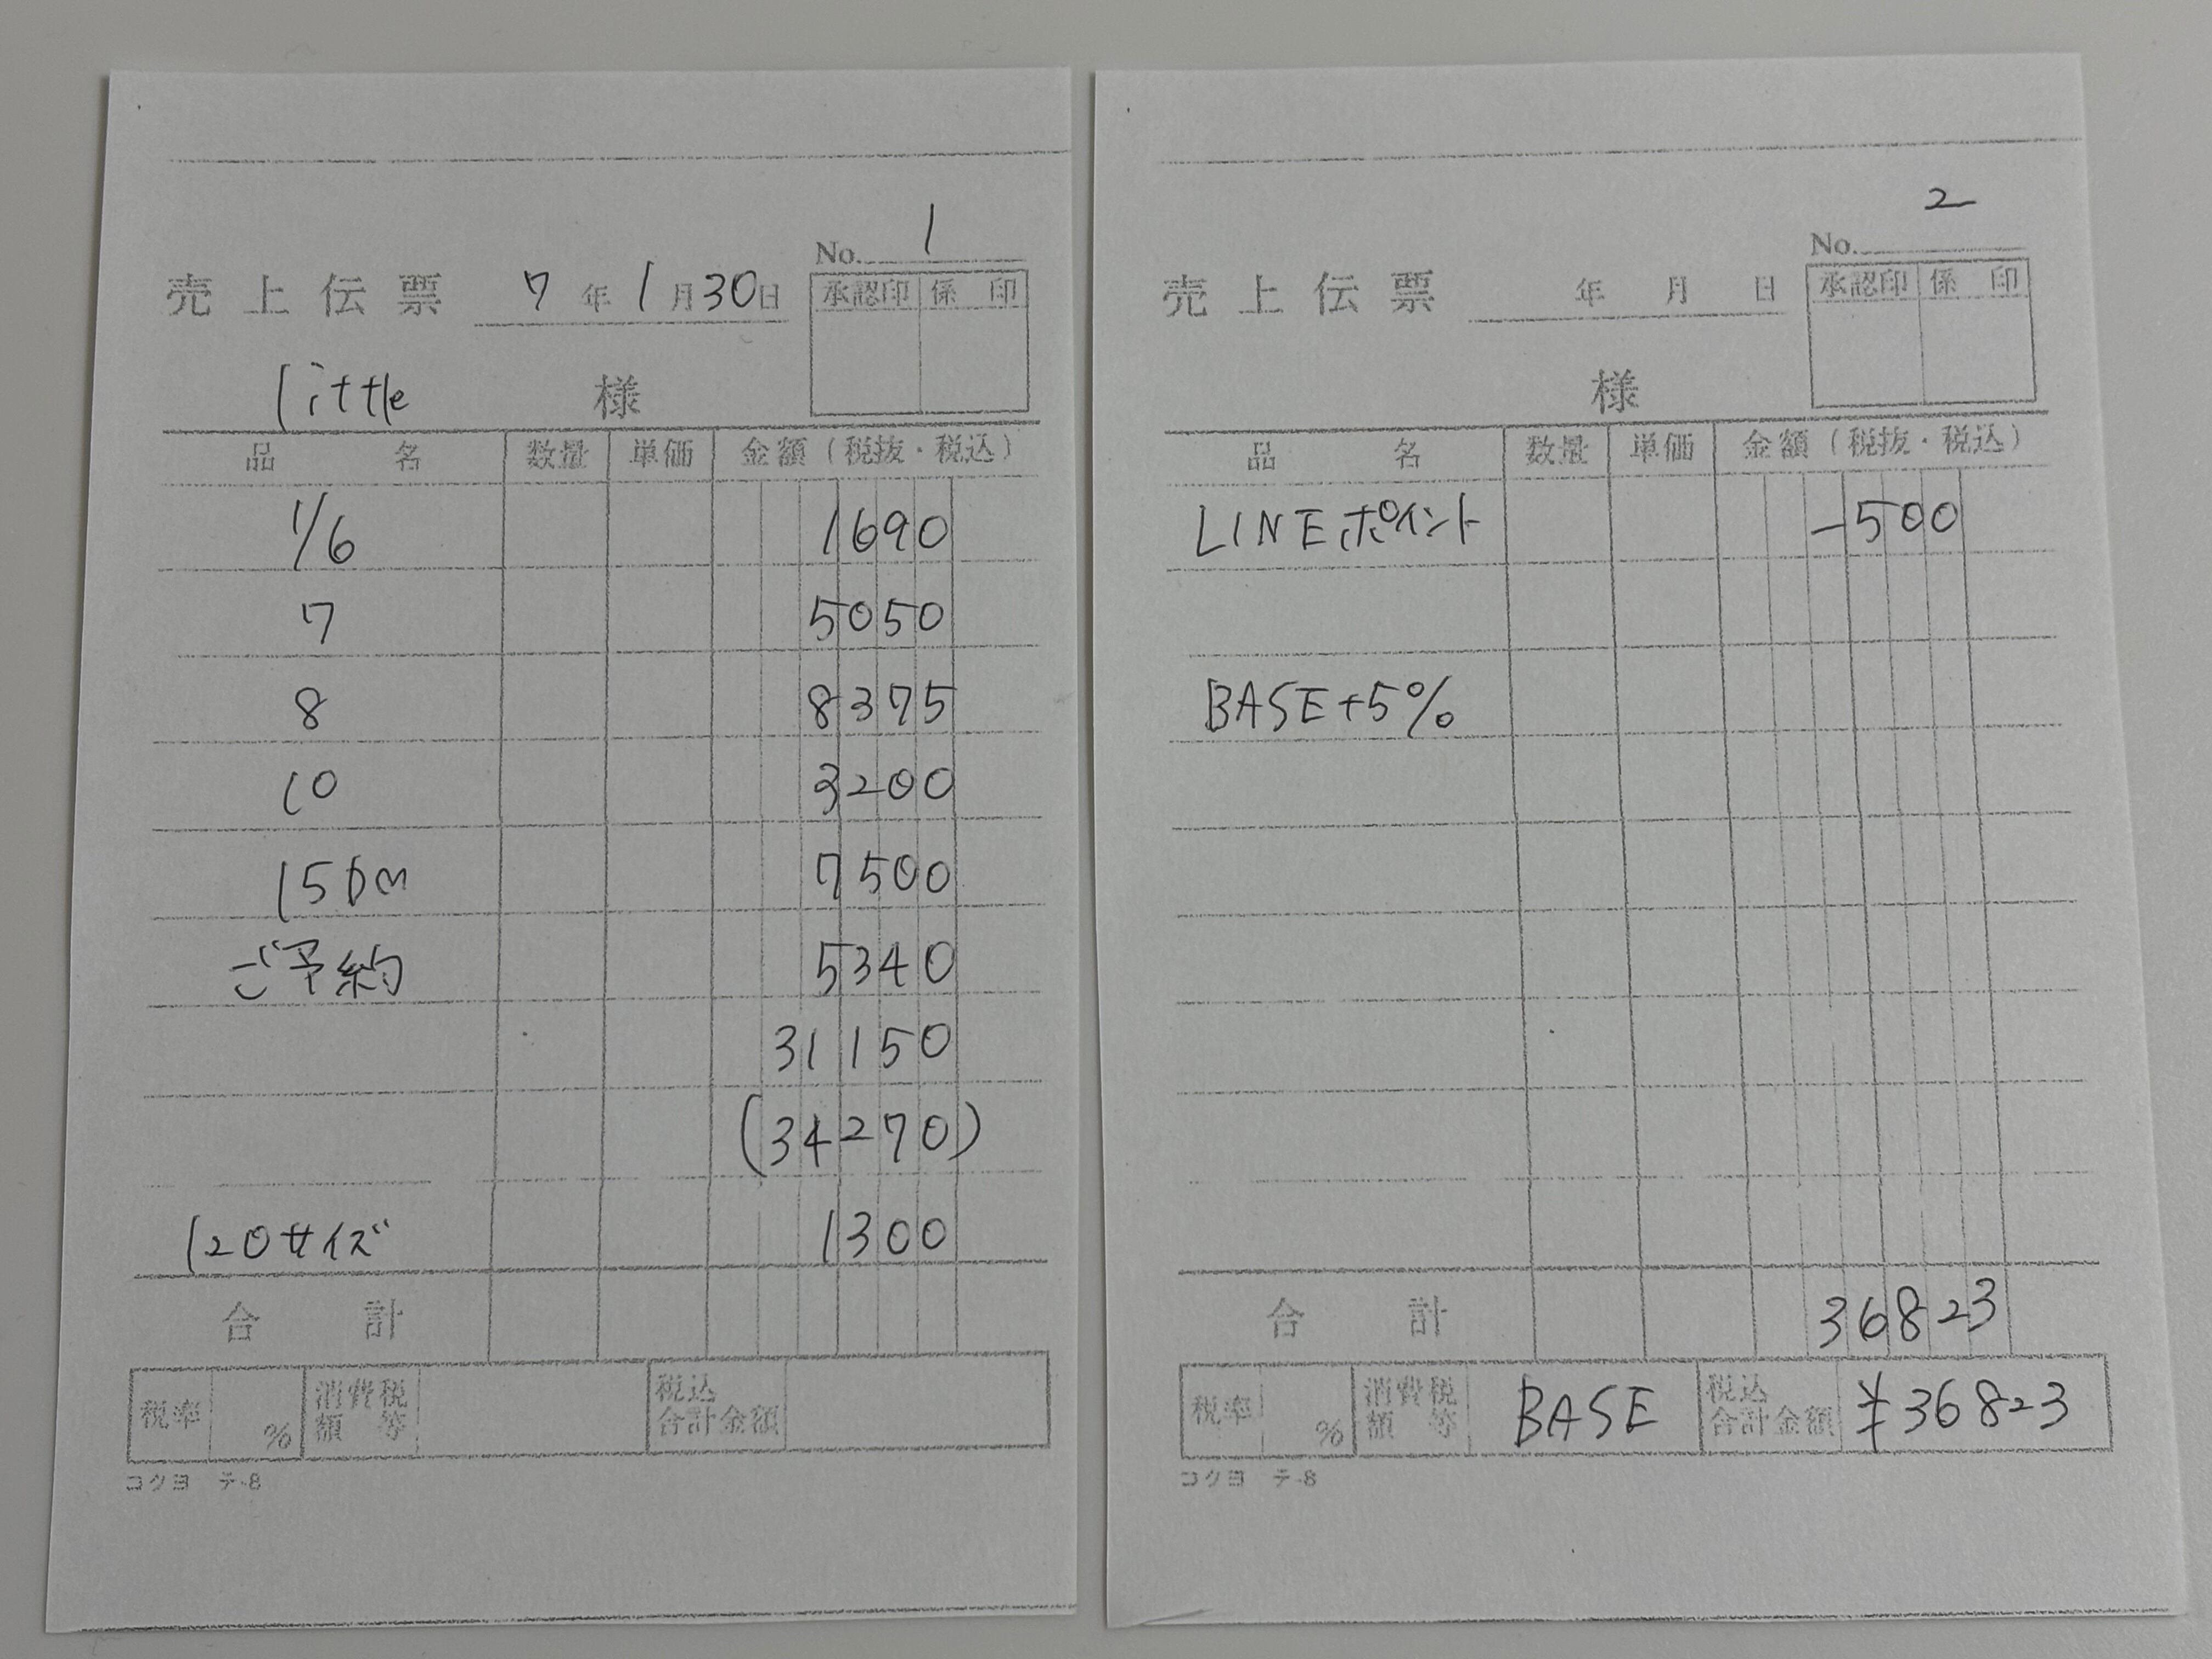 No. 1
売上伝票 7年1月30日
承認印 係印
little 様
品名 数量 単価 金額(税抜・税込)
1/6 1690
7 5050
8 8375
10 3200
15DM 7500
ご予約 5340
31150
(34270)
120サイズ 1300
合計
税率 % 消費税額等 税込合計金額
コクヨ テ-8
No. 2
売上伝票 年月日
承認印 係印
様
品名 数量 単価 金額(税抜・税込)
LINEポイント -500
BASE+5%
合計 36823
税率 % 消費税額等 BASE 税込合計金額 ¥36823
コクヨ テ-8